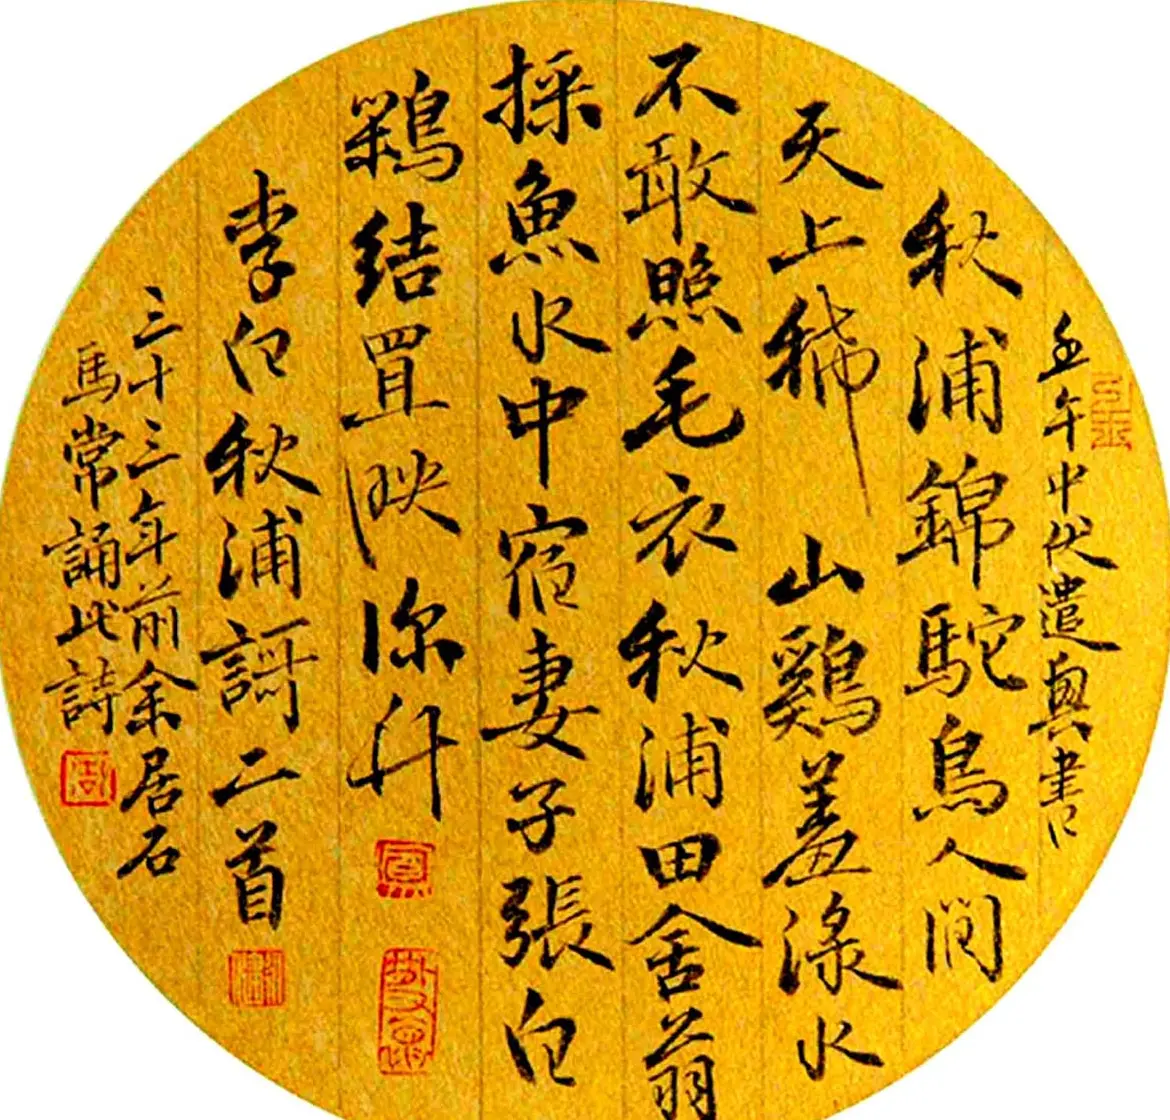 壬午中伏遣興書
秋浦錦駝鳥人間
天上稀 山鷄羞淥水
不敢照毛衣秋浦田舍翁
採魚水中宿妻子張白
鷴結罝映深竹
李白秋浦謌二首
三十三年前余居石
馬常誦此詩